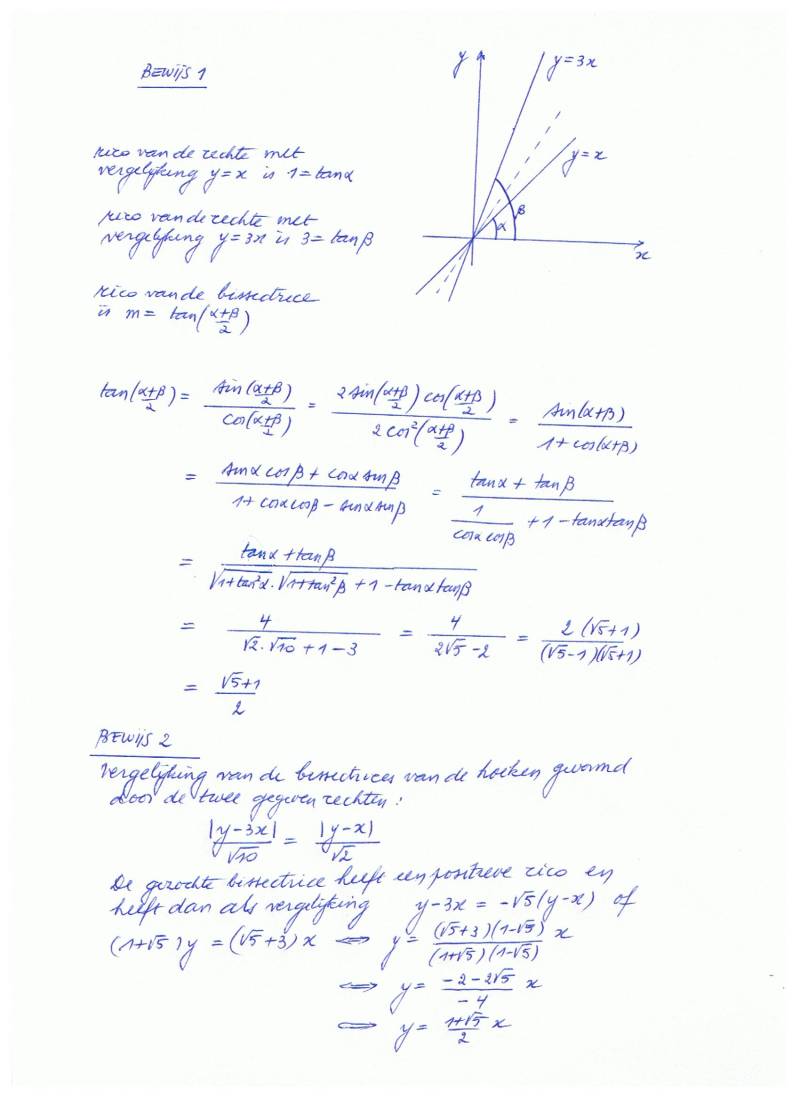 BEWIJS 1
y
y = 3x
y = x
β
α
x
rico van de rechte met
vergelijking y = x is 1 = tanα
rico van de rechte met
vergelijking y = 3x is 3 = tanβ
rico van de bissectrice
is m = tan((α+β)/2)
tan((α+β)/2) = sin((α+β)/2) / cos((α+β)/2) = 2 sin((α+β)/2) cos((α+β)/2) / 2 cos²((α+β)/2) = sin(α+β) / (1 + cos(α+β))
= (sinα cosβ + cosα sinβ) / (1 + cosα cosβ − sinα sinβ) = (tanα + tanβ) / (1/(cosα cosβ) + 1 − tanα tanβ)
= (tanα + tanβ) / (√(1+tan²α) . √(1+tan²β) + 1 − tanα tanβ)
= 4 / (√2 . √10 + 1 − 3) = 4 / (2√5 − 2) = 2 (√5+1) / (√5−1)(√5+1)
= (√5+1) / 2
BEWIJS 2
Vergelijking van de bissectrices van de hoeken gevormd
door de twee gegeven rechten :
|y−3x| / √10 = |y−x| / √2
De gezochte bissectrice heeft een positieve rico en
heeft dan als vergelijking y−3x = −√5 (y−x) of
(1+√5) y = (√5+3) x ⟺ y = (√5+3)(1−√5) / (1+√5)(1−√5) x
⟺ y = (−2−2√5) / −4 x
⟺ y = (1+√5) / 2 x